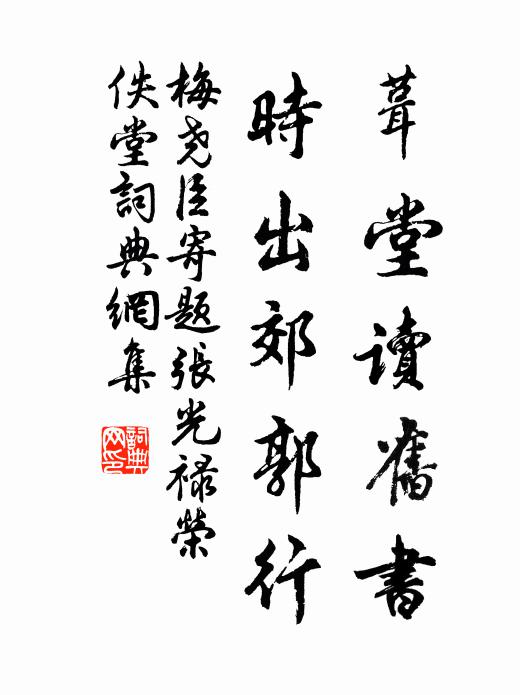 葺堂讀舊書
時出郊郭行
梅尧臣寄题張光禄榮
佚堂詞典網集
詞典网印